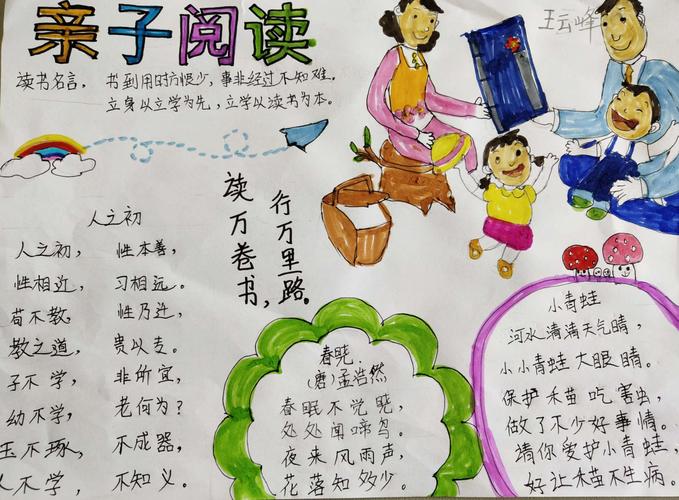 亲子阅读
王云峰
读书名言。书到用时方恨少,事非经过不知难。
立身以立学为先,立学以读书为本。
读万卷书,
行万里路。
人之初
人之初, 性本善,
性相近, 习相远。
苟不教 性乃迁,
教之道, 贵以专。
子不学, 非所宜,
幼不学, 老何为?
玉不琢, 不成器,
人不学, 不知义。
春晓
(唐)孟浩然
春眠不觉晓,
处处闻啼鸟。
夜来风雨声,
花落知多少。
小青蛙
河水清清天气晴,
小小青蛙大眼睛。
保护禾苗吃害虫,
做了不少好事情。
请你爱护小青蛙,
好让禾苗不生病。